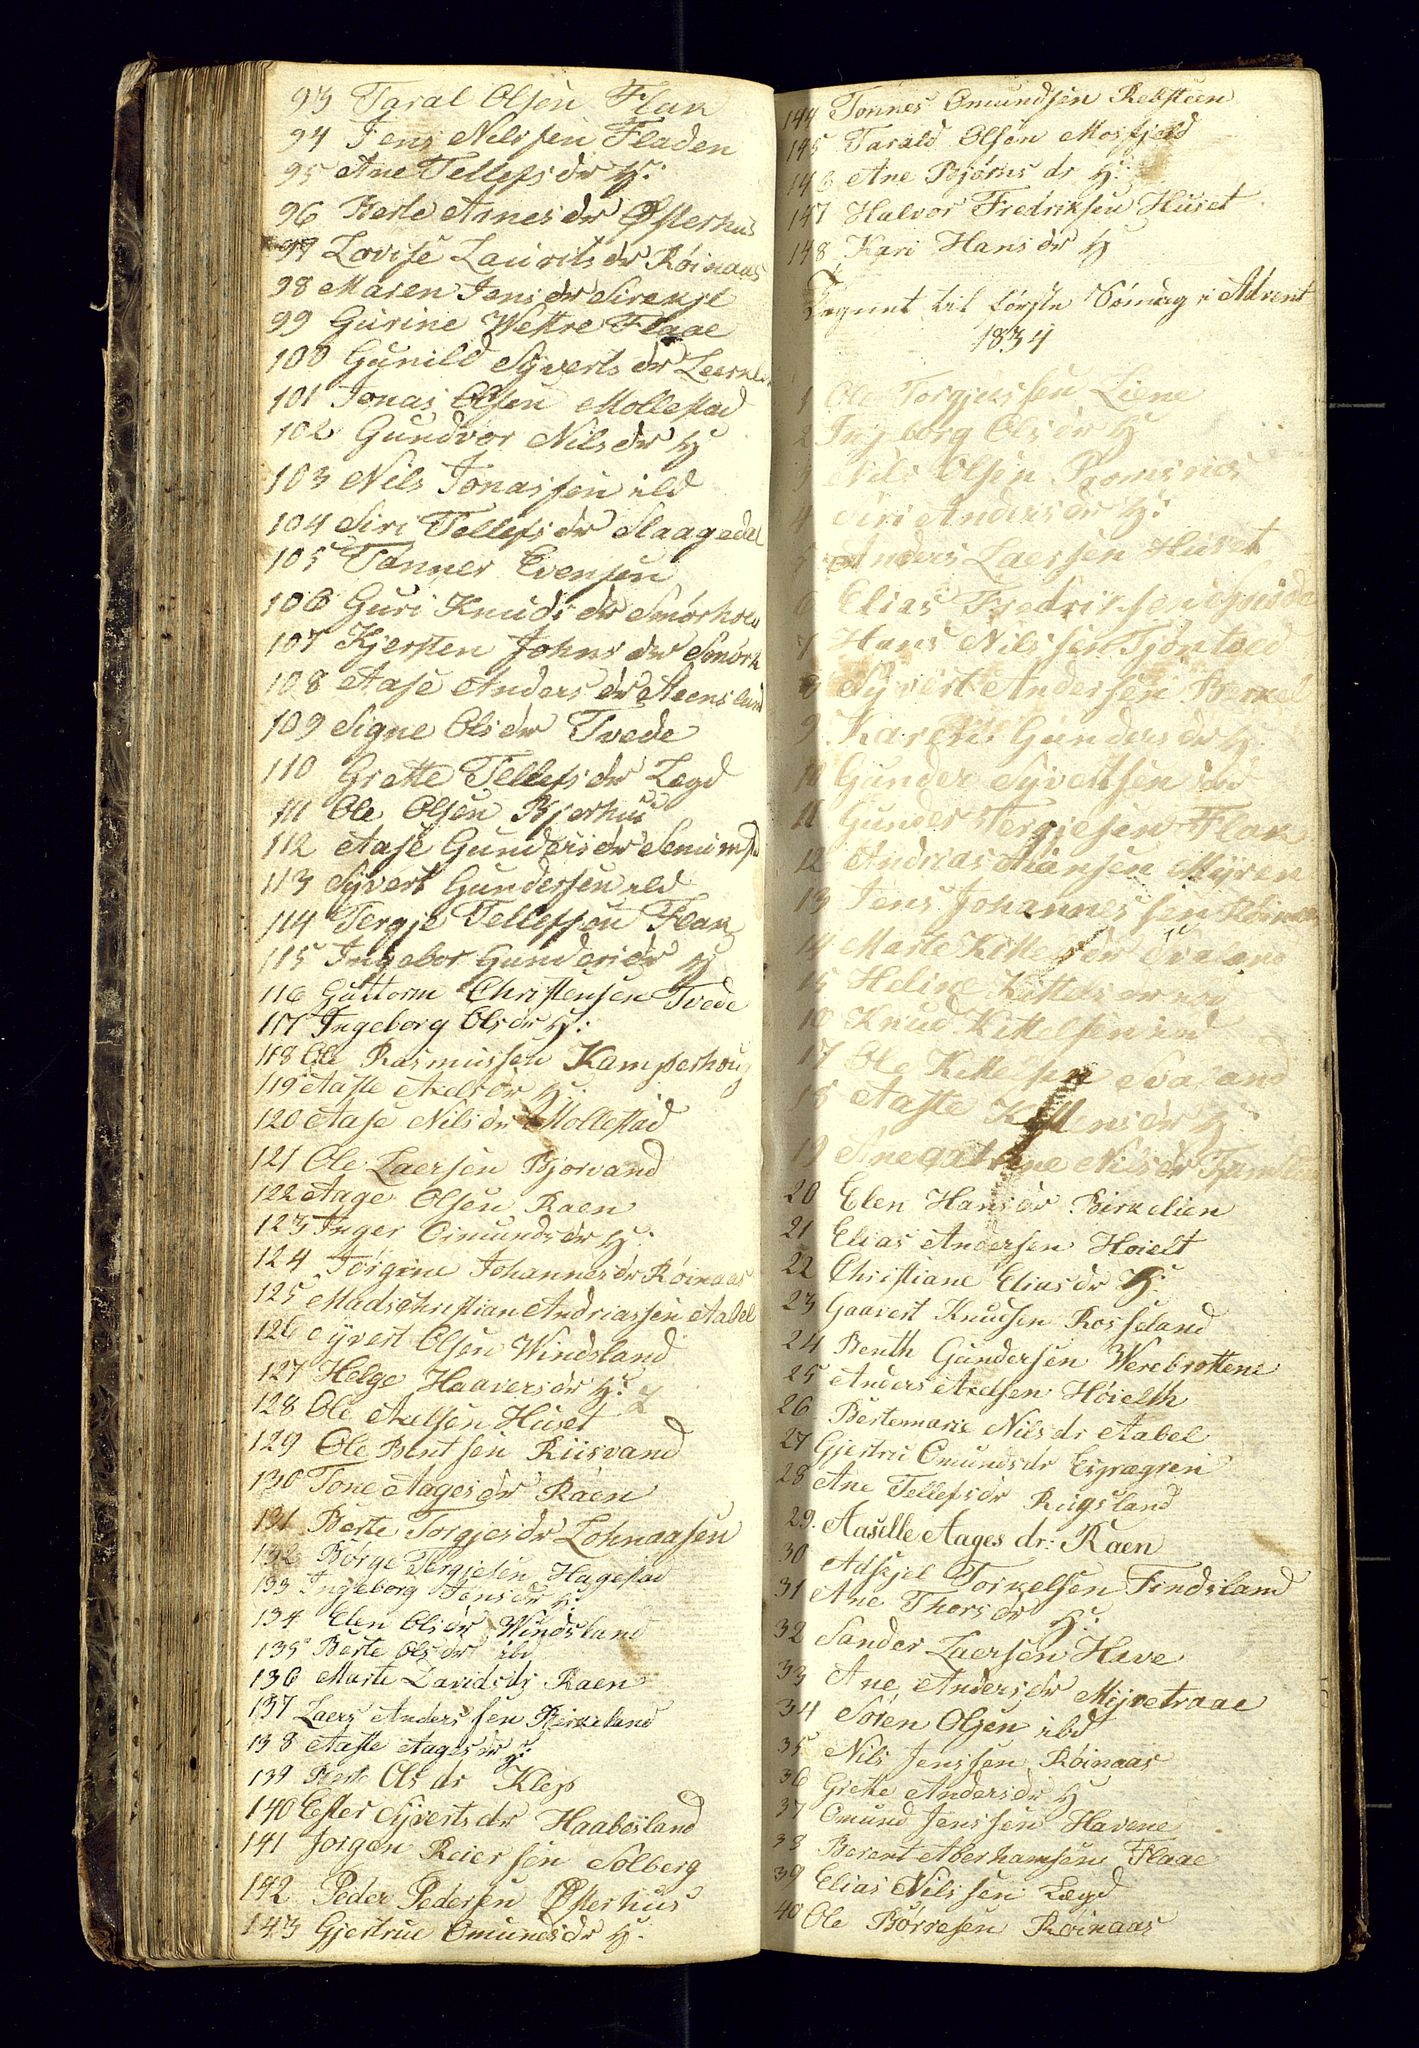 93 Taral Olsen Flak
94 Jens Nilssen Fladen
95 Ane Tellefsdr H:
96 Berte Annesdr Østerhus
97 Lovise Lauritsdr Røinaas
98 Maren Jensdr
99 Gurine Westre Flaae
100 Gunild Syvertsdr
101 Jonas Olsen Mollestad
102 Gundvor Nilsdr H
103 Nils Jonassen ibd
104 Siri Tellefsdr Slaagedal
105 Tonnes Evensen
106 Guri Knudsdr
107 Kjersten Johnsdr
108 Aase Andersdr
109 Signe Olsdr Tvede
110 Grette Tellefsdr Lægd
111 Ole Olsen Bjerhus
112 Aase Gundersdr
113 Syvert Gundersen ibd
114 Tergje Tellefsen Flak
115 Ingebor Gundersdr H
116 Guttorm Christensen Tvede
117 Ingeborg Olsdr H:
118 Ole Rasmussen Kamperhoug
119 Aaste Axelsdr H:
120 Aase Nilsdr Mollestad
121 Ole Laersen Bjorvand
122 Aage Olsen Raen
123 Inger Omundsdr H:
124 Jørgine Johannesdr Røinaas
125 Madschristian Andriassen Aabel
126 Syvert Olsen Windsland
127 Helge Haaversdr H:
128 Ole Axelsen Huset
129 Ole Bentsen Riisvand
130 Tone Aagesdr Raen
131 Berte Torgjesdr Lohnaasen
132 Børge Tergiesen Hagestad
133 Ingeborg Jensdr H:
134 Elen Olsdr Windsland
135 Berte Olsdr ibd
136 Marte Davidsdr Raen
137 Laers Anderssen Birkeland
138 Aaste Aagesdr H:
139 Berte Olsdr Klep
140 Ester Syvertsdr Haabesland
141 Jorgen Reiersen Solberg
142 Peder Pedersen Østerhus
143 Gjertrue Omundsdr H:
144 Tonnes Omundsen Rebsteen
145 Tarald Olsen Mosfjeld
146 Ane Bjørnsdr H:
147 Halvor Fredriksen Huset
148 Kari Hansdr H
Begynt til første Søndag i Advent
1834
1 Ole Torgjussen Liene
2 Ingeborg Olsdr H
3 Nils Olsen Romsaas
4 Siri Andersdr H:
5 Anders Laersen Huset
6 Elias Fredriksen
7 Hans Nilssen Tjøntved
8 Syvert Andersen
9 Karen Gundersdr H.
10 Gunder Syvertsen ibd
11 Gunder Tergiesen Flak
12 Andrias Hansen Myren
13 Jens Johannessen Røinaas
14 Marte Kittelsdr Svaland
15 Heline Kittelsdr ibd
16 Knud Kittelsen ibd
17 Ole Kittelsen Svaland
18 Aaste H:
19 Anecatrine Nilsdr
20 Elen Hansdr Birkelien
21 Elias Andersen Høielt
22 Christiane Eliasdr H:
23 Gaavert Knudsen Rosseland
24 Benth Gundersen Werebrottene
25 Anders Axelsen Høielth
26 Bertemarie Nilsdr Aabel
27 Gjertru Omundsdr Espægren
28 Ane Tellefsdr Rugsland
29. Aasille Aages dr: Raen
30 Adskjel Torkelsen Findsland
31 Ane Thorsdr H:
32 Sander Laersen Have
33 Ane Andersdr Myvetraae
34 Søren Olsen ibd
35 Nils Jenssen Røinaas
36 Grette Andersdr H
37 Omund Jenssen Havene
38 Berent Aberhamsen Flaae
39 Elias Nilssen Lægd
40 Ole Børresen Røinaas